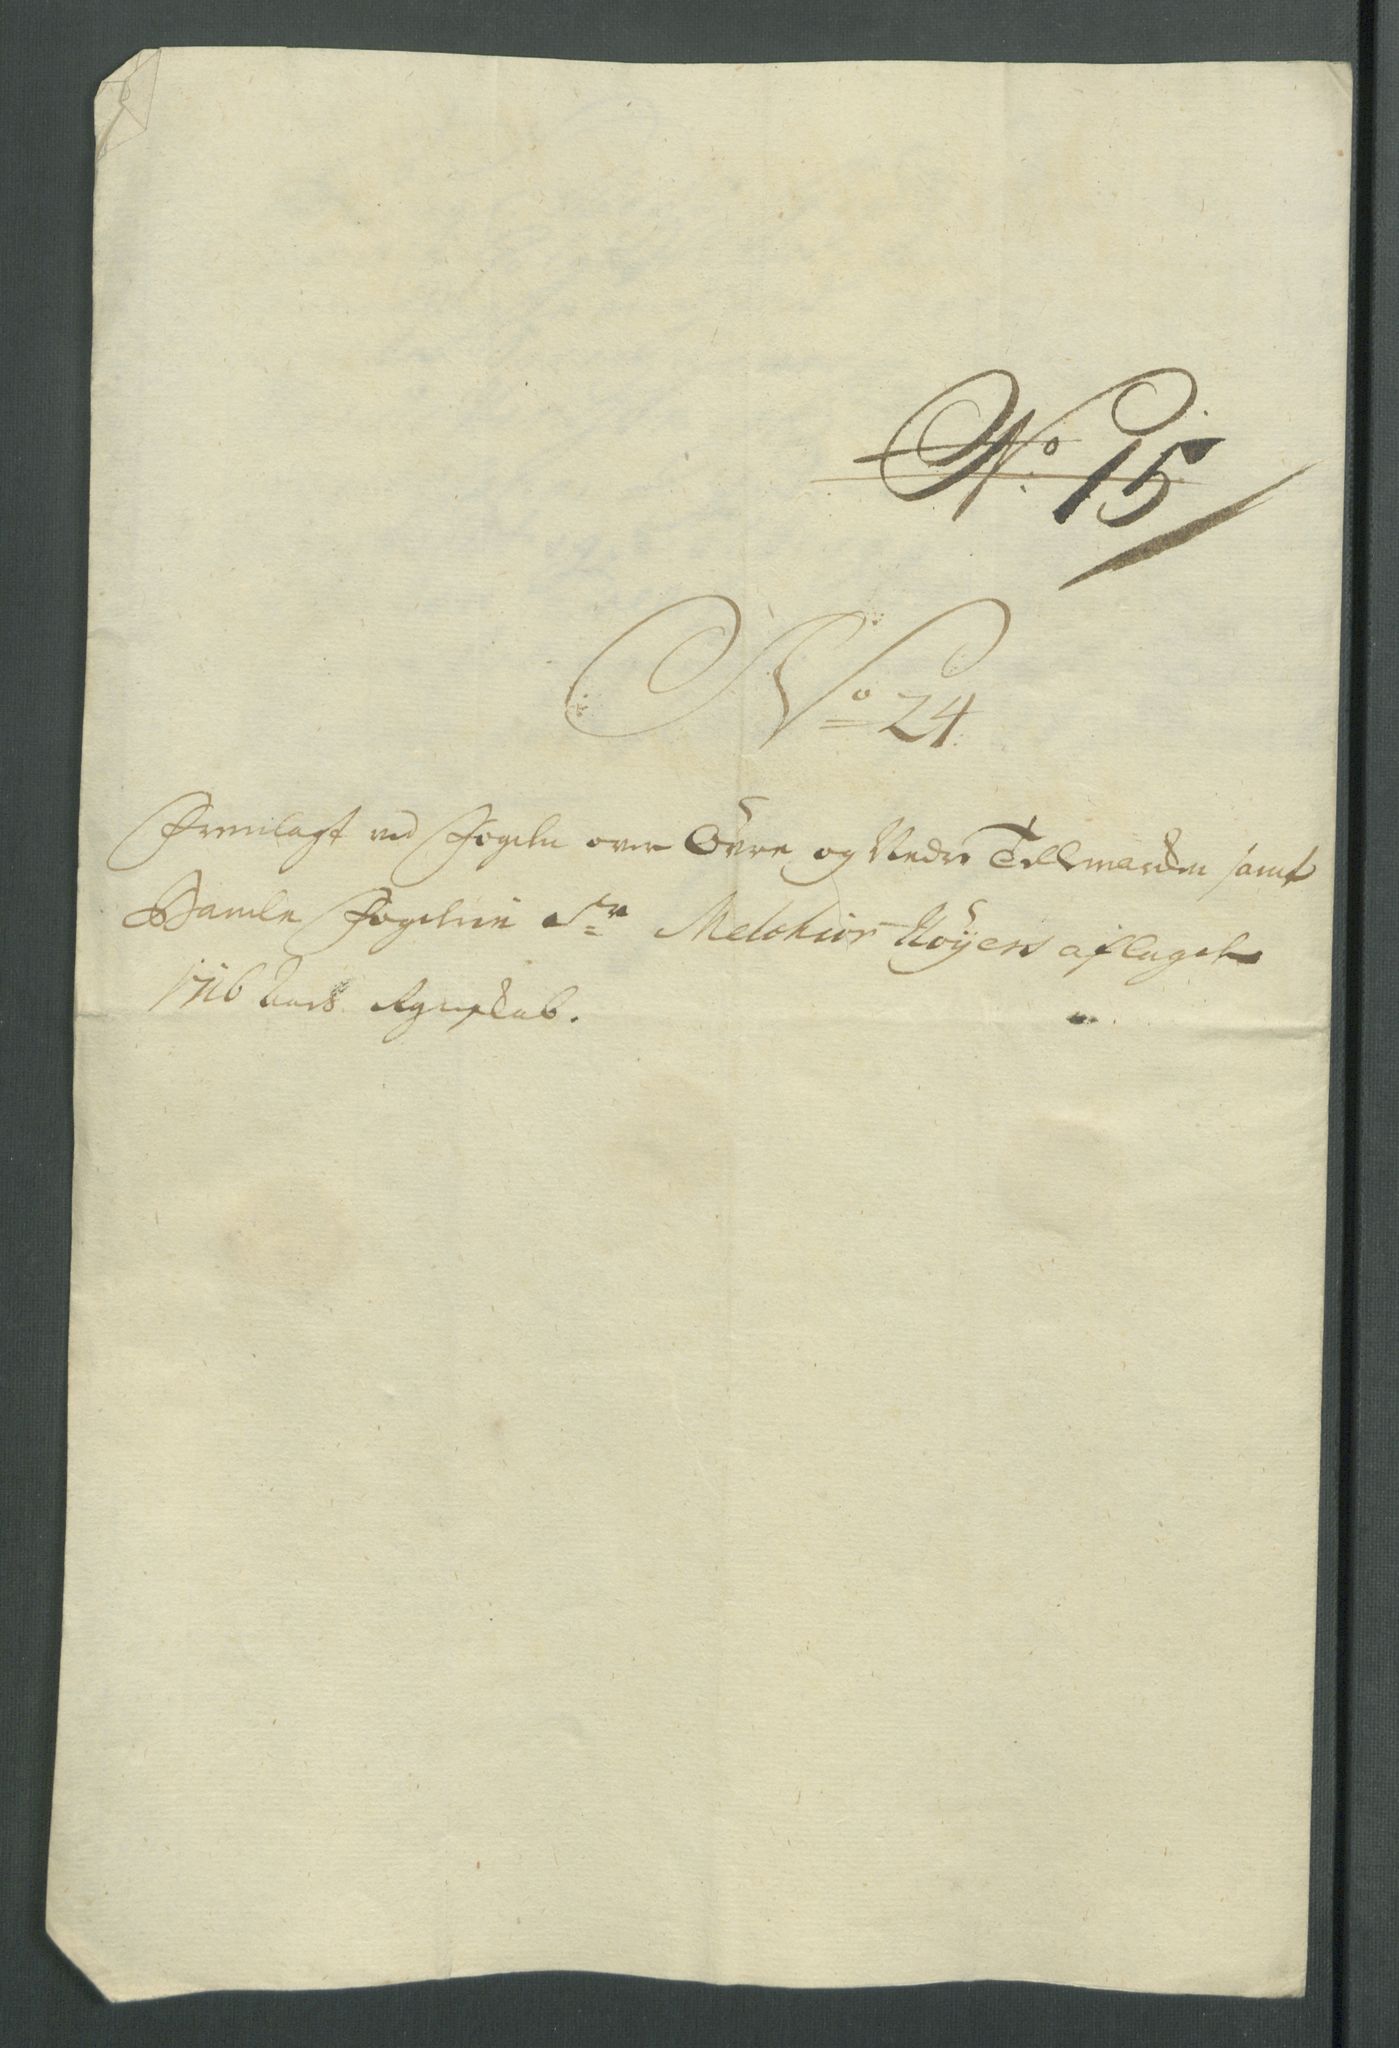 No 15
No 24
Fremlagt ved Fogeden over Övre og Nedre Tellmarcken samt
Bamle Fogderie Sr Melchior Höyers aflagde
1716 Aars Regenskab.